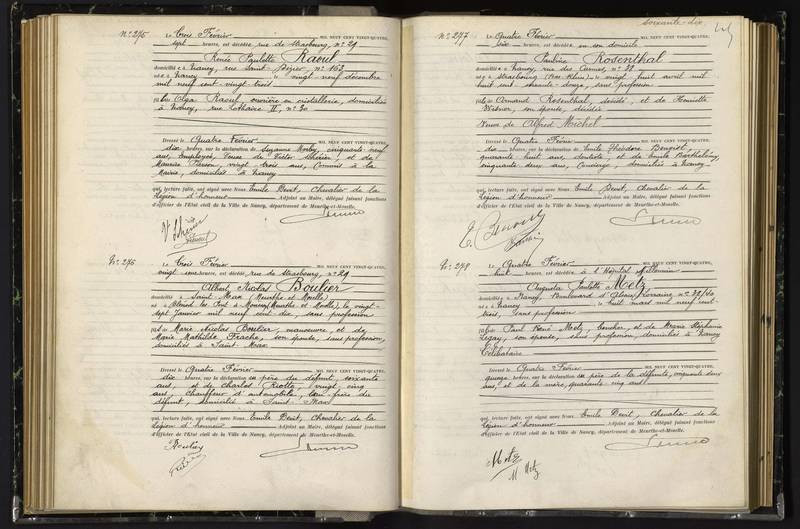 N° 275
Le Trois Février MIL NEUF CENT VINGT-QUATRE,
sept heures, est décédée, rue de Strasbourg, n° 29
Renée Paulette Raoul
domiciliée à Nancy, rue Saint- n° 163
née à Nancy, le vingt neuf décembre
mil neuf cent vingt trois
fille Olga Raoul, ouvrière en cristallerie, domiciliée
à Nancy, rue Lothaire II, n° 30
Dressé le Quatre Février MIL NEUF CENT VINGT-QUATRE,
dix heures, sur la déclaration de Suzanne cinquante neuf
ans, employée, Veuve de Victor et de
Maurice vingt trois ans, Commis à la
Mairie, domiciliés à Nancy
qui, lecture faite, ont signé avec Nous, Emile Devit, Chevalier de la
Légion d'honneur Adjoint au Maire, délégué faisant fonctions
d'officier de l'État civil de la Ville de Nancy, département de Meurthe-et-Moselle.
N° 276
Le Trois Février MIL NEUF CENT VINGT-QUATRE,
vingt une heures, est décédé, rue de Strasbourg, n° 29
Albert Nicolas Boulier
domicilié à Saint Max (Meurthe et Moselle)
né à Blénod les Pont à Mousson (Meurthe et Moselle), le vingt-
sept Janvier mil neuf cent dix, sans profession
fils de Marie Nicolas Boulier, manœuvre, et de
Marie Mathilde Frache, son épouse, sans profession,
domiciliés à Saint Max
Dressé le Quatre Février MIL NEUF CENT VINGT-QUATRE,
dix heures, sur la déclaration du père du défunt, soixante
ans, et de Charles vingt cinq
ans, chauffeur d'automobile, beau-frère du
défunt, domicilié à Saint Max
qui, lecture faite, ont signé avec Nous, Emile Devit, Chevalier de la
Légion d'honneur Adjoint au Maire, délégué faisant fonctions
d'officier de l'État civil de la Ville de Nancy, département de Meurthe-et-Moselle.
Boulier
Soixante-dix
N° 277
Le Quatre Février MIL NEUF CENT VINGT-QUATRE,
six heures, est décédée en son domicile
Pauline Rosenthal
domiciliée à Nancy, rue des n° 33
née à Strasbourg (Bas-Rhin), le vingt huit avril mil
huit cent soixante-douze, sans profession
fille de Armand Rosenthal, décédé, et de Henriette
son épouse, décédée
Veuve de Alfred Michel
Dressé le Quatre Février MIL NEUF CENT VINGT-QUATRE,
dix heures, sur la déclaration de Emile Théodore
quarante huit ans, dentiste, et de Emile Barthélemy,
cinquante deux ans, Concierge, domiciliés à Nancy
qui, lecture faite, ont signé avec Nous, Emile Devit, Chevalier de la
Légion d'honneur Adjoint au Maire, délégué faisant fonctions
d'officier de l'État civil de la Ville de Nancy, département de Meurthe-et-Moselle.
N° 278
Le Quatre Février MIL NEUF CENT VINGT-QUATRE,
huit heures, est décédée à l'Hôpital Villemin
Augusta Paulette Metz
domiciliée à Nancy, Boulevard d'Alsace Lorraine n° 38/40
née à Nancy le huit mars mil neuf cent
trois, sans profession
fille Paul René Metz, boucher, et de Marie Stéphanie
son épouse, sans profession, domiciliés à Nancy
Célibataire
Dressé le Quatre Février MIL NEUF CENT VINGT-QUATRE,
quinze heures, sur la déclaration du père de la défunte, cinquante deux
ans, et de la mère, quarante cinq ans
qui, lecture faite, ont signé avec Nous, Emile Devit, Chevalier de la
Légion d'honneur Adjoint au Maire, délégué faisant fonctions
d'officier de l'État civil de la Ville de Nancy, département de Meurthe-et-Moselle.
Metz
M Metz